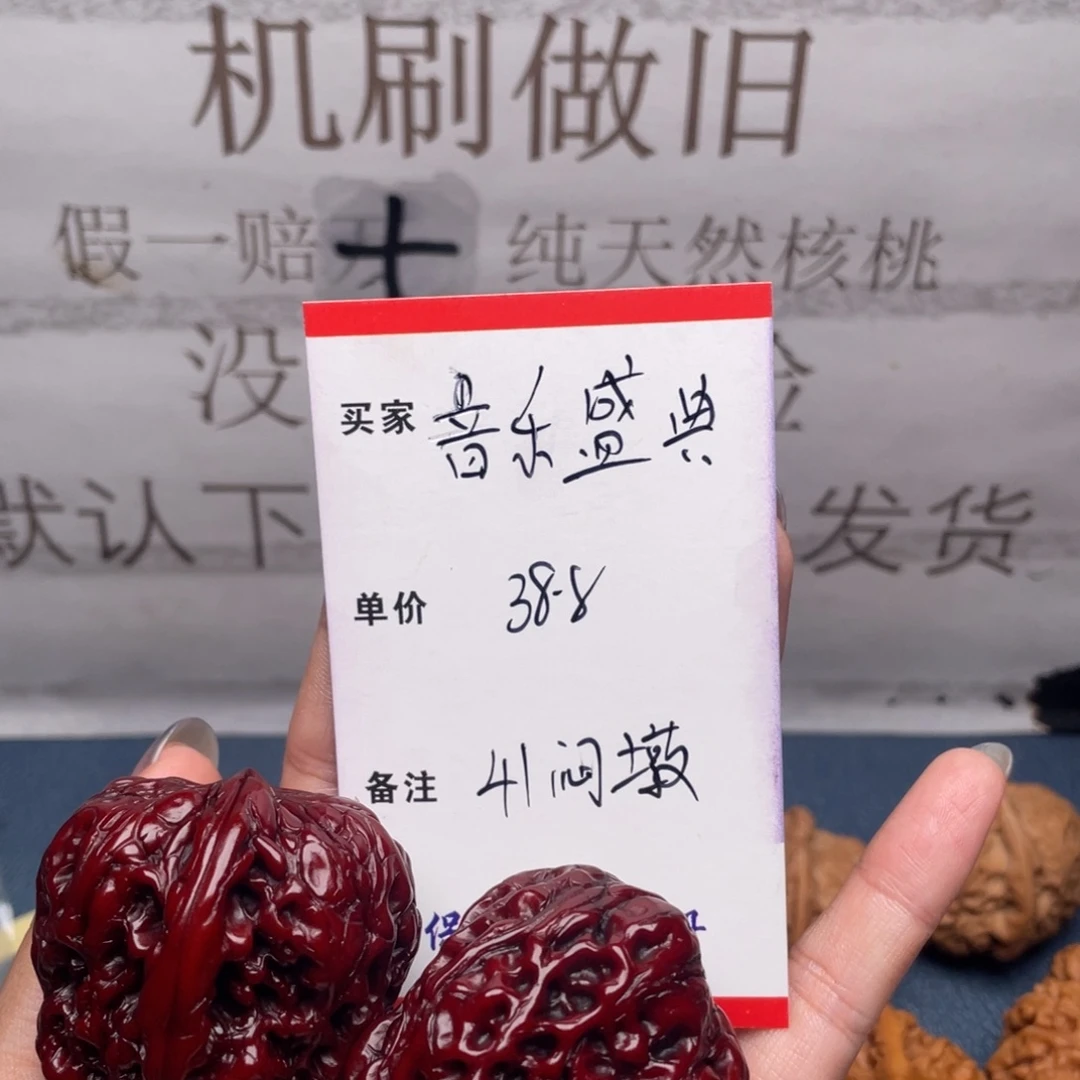 机刷做旧
假一赔十 纯天然核桃
没
默认下 发货
买家 音乐盛典
单价 38.8
备注 41闷墩
保